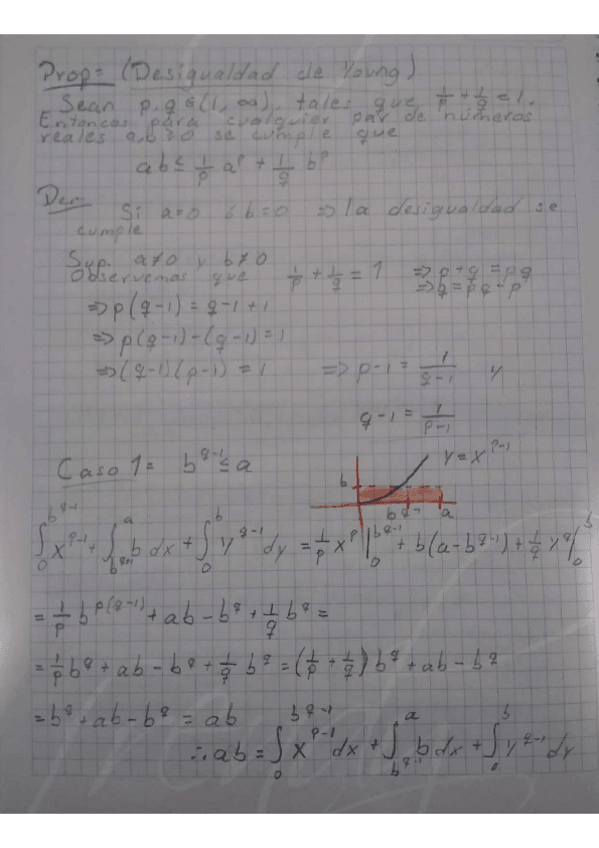 Prop= (Desigualdad de Young)
Sean p,q ∈ (1, ∞), tales que 1/p + 1/q = 1.
Entonces para cualquier par de números
reales a,b ≥ 0 se cumple que
ab ≤ 1/p a^p + 1/q b^p
Dem.
Si a=0 ó b=0 ⇒ la desigualdad se
cumple
Sup. a≠0 y b≠0
Observemos que 1/p + 1/q = 1 ⇒ p+q = pq
⇒ q = pq - p
⇒ p(q-1) = q-1+1
⇒ p(q-1)-(q-1) = 1
⇒ (q-1)(p-1) = 1 ⇒ p-1 = 1/(q-1) y
q-1 = 1/(p-1)
Caso 1= b^(q-1) ≤ a
y = x^(p-1)
b
b^(q-1) a
∫_0^(b^(q-1)) x^(p-1) + ∫_(b^(q-1))^a b dx + ∫_0^b y^(q-1) dy = 1/p x^p |_0^(b^(q-1)) + b(a-b^(q-1)) + 1/q y^q |_0^b
= 1/p b^(p(q-1)) + ab - b^q + 1/q b^q =
= 1/p b^q + ab - b^q + 1/q b^q = (1/p + 1/q) b^q + ab - b^q
= b^q + ab - b^q = ab
∴ ab = ∫_0^(b^(q-1)) x^(p-1) dx + ∫_(b^(q-1))^a b dx + ∫_0^b y^(q-1) dy